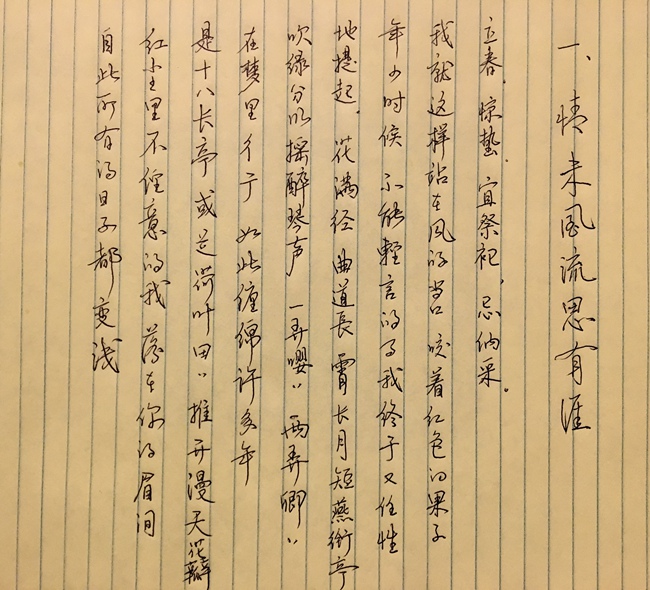 一、情未风流思有涯
立春.惊蛰.宜祭祀,忌纳采。
我就这样站在风的当口咬着红色的果子
年少时候不能轻言的事我终于又任性
地提起.花满径曲道长霄长月短燕衔亭
吹绿分明摇醉琴声一弄嘤〃两弄卿〃
在梦里行于如此缠绵许多年
是十八长亭或是荷叶田〃推开漫天花瓣
红尘里不经意的我落在你的眉间
自此所有的日子都变浅